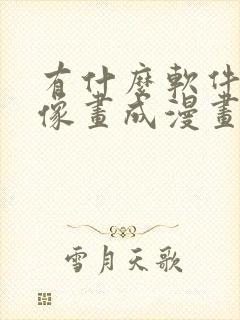 有什麼軟件
像畫成漫畫
雪月天歌